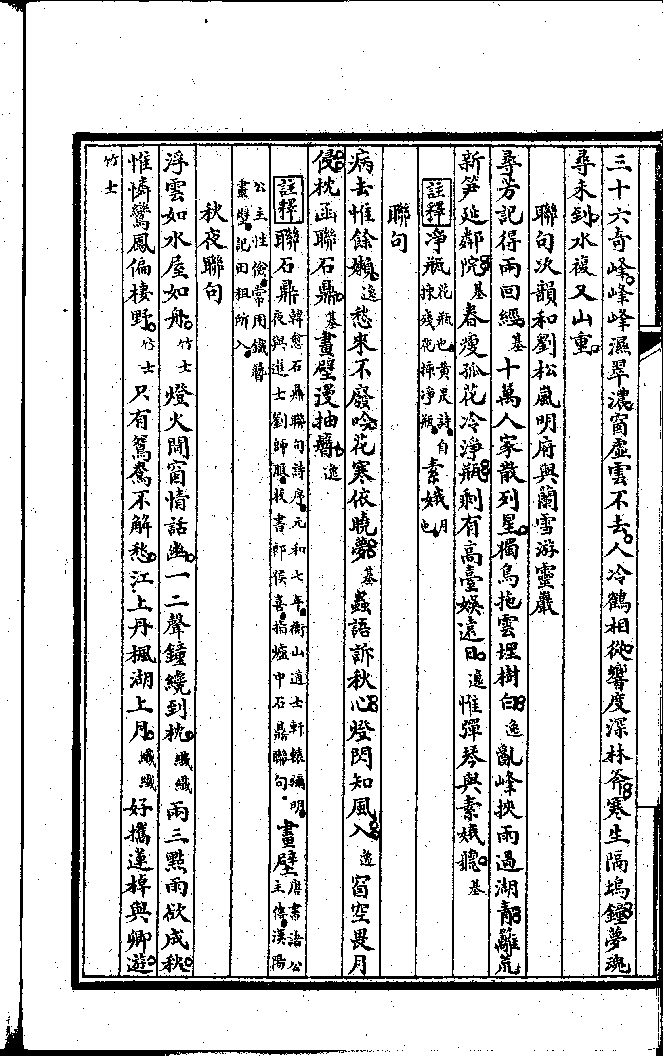 三十六奇峰峰峰濕翠濃窗虛雲不去人冷鶴相從響度深林斧寒生隔塢鐘夢魂
尋未到水複又山重
聯句次韻和劉松嵐明府與蘭雪游靈巖
尋芳記得兩回經基十萬人家散列星獨鳥拖雲埋樹白逸亂峰挾雨過湖青籬荒
新笋延鄰院基春瘦孤花冷淨瓶剩有高臺娛遠目逸惟彈琴與素娥聽基
註釋淨瓶花瓶也黃庭詩自揀殘花揷淨瓶素娥月也
聯句
病去惟餘嬾逸愁來不廢吟花寒依曉夢基蟲語訴秋心燈閃知風入逸窗空畏月
侵枕函聯石鼎基畫壁漫抽簪逸
註釋聯石鼎韓愈石鼎聯句詩序元和七年衡山道士軒轅彌明夜與進士劉師服校書郎侯喜指爐中石鼎聯句畫壁唐書諸公主傳漢陽
公主性儉常用鐵簪畫壁記田租所入
秋夜聯句
浮雲如水屋如舟竹士燈火閒窗情話幽一二聲鐘繞到枕纖纖兩三點雨欲成秋
惟憐鸞鳳偏棲野竹士只有鴛鴦不解愁江上丹楓湖上月纖纖好攜蓮棹與卿遊
竹士